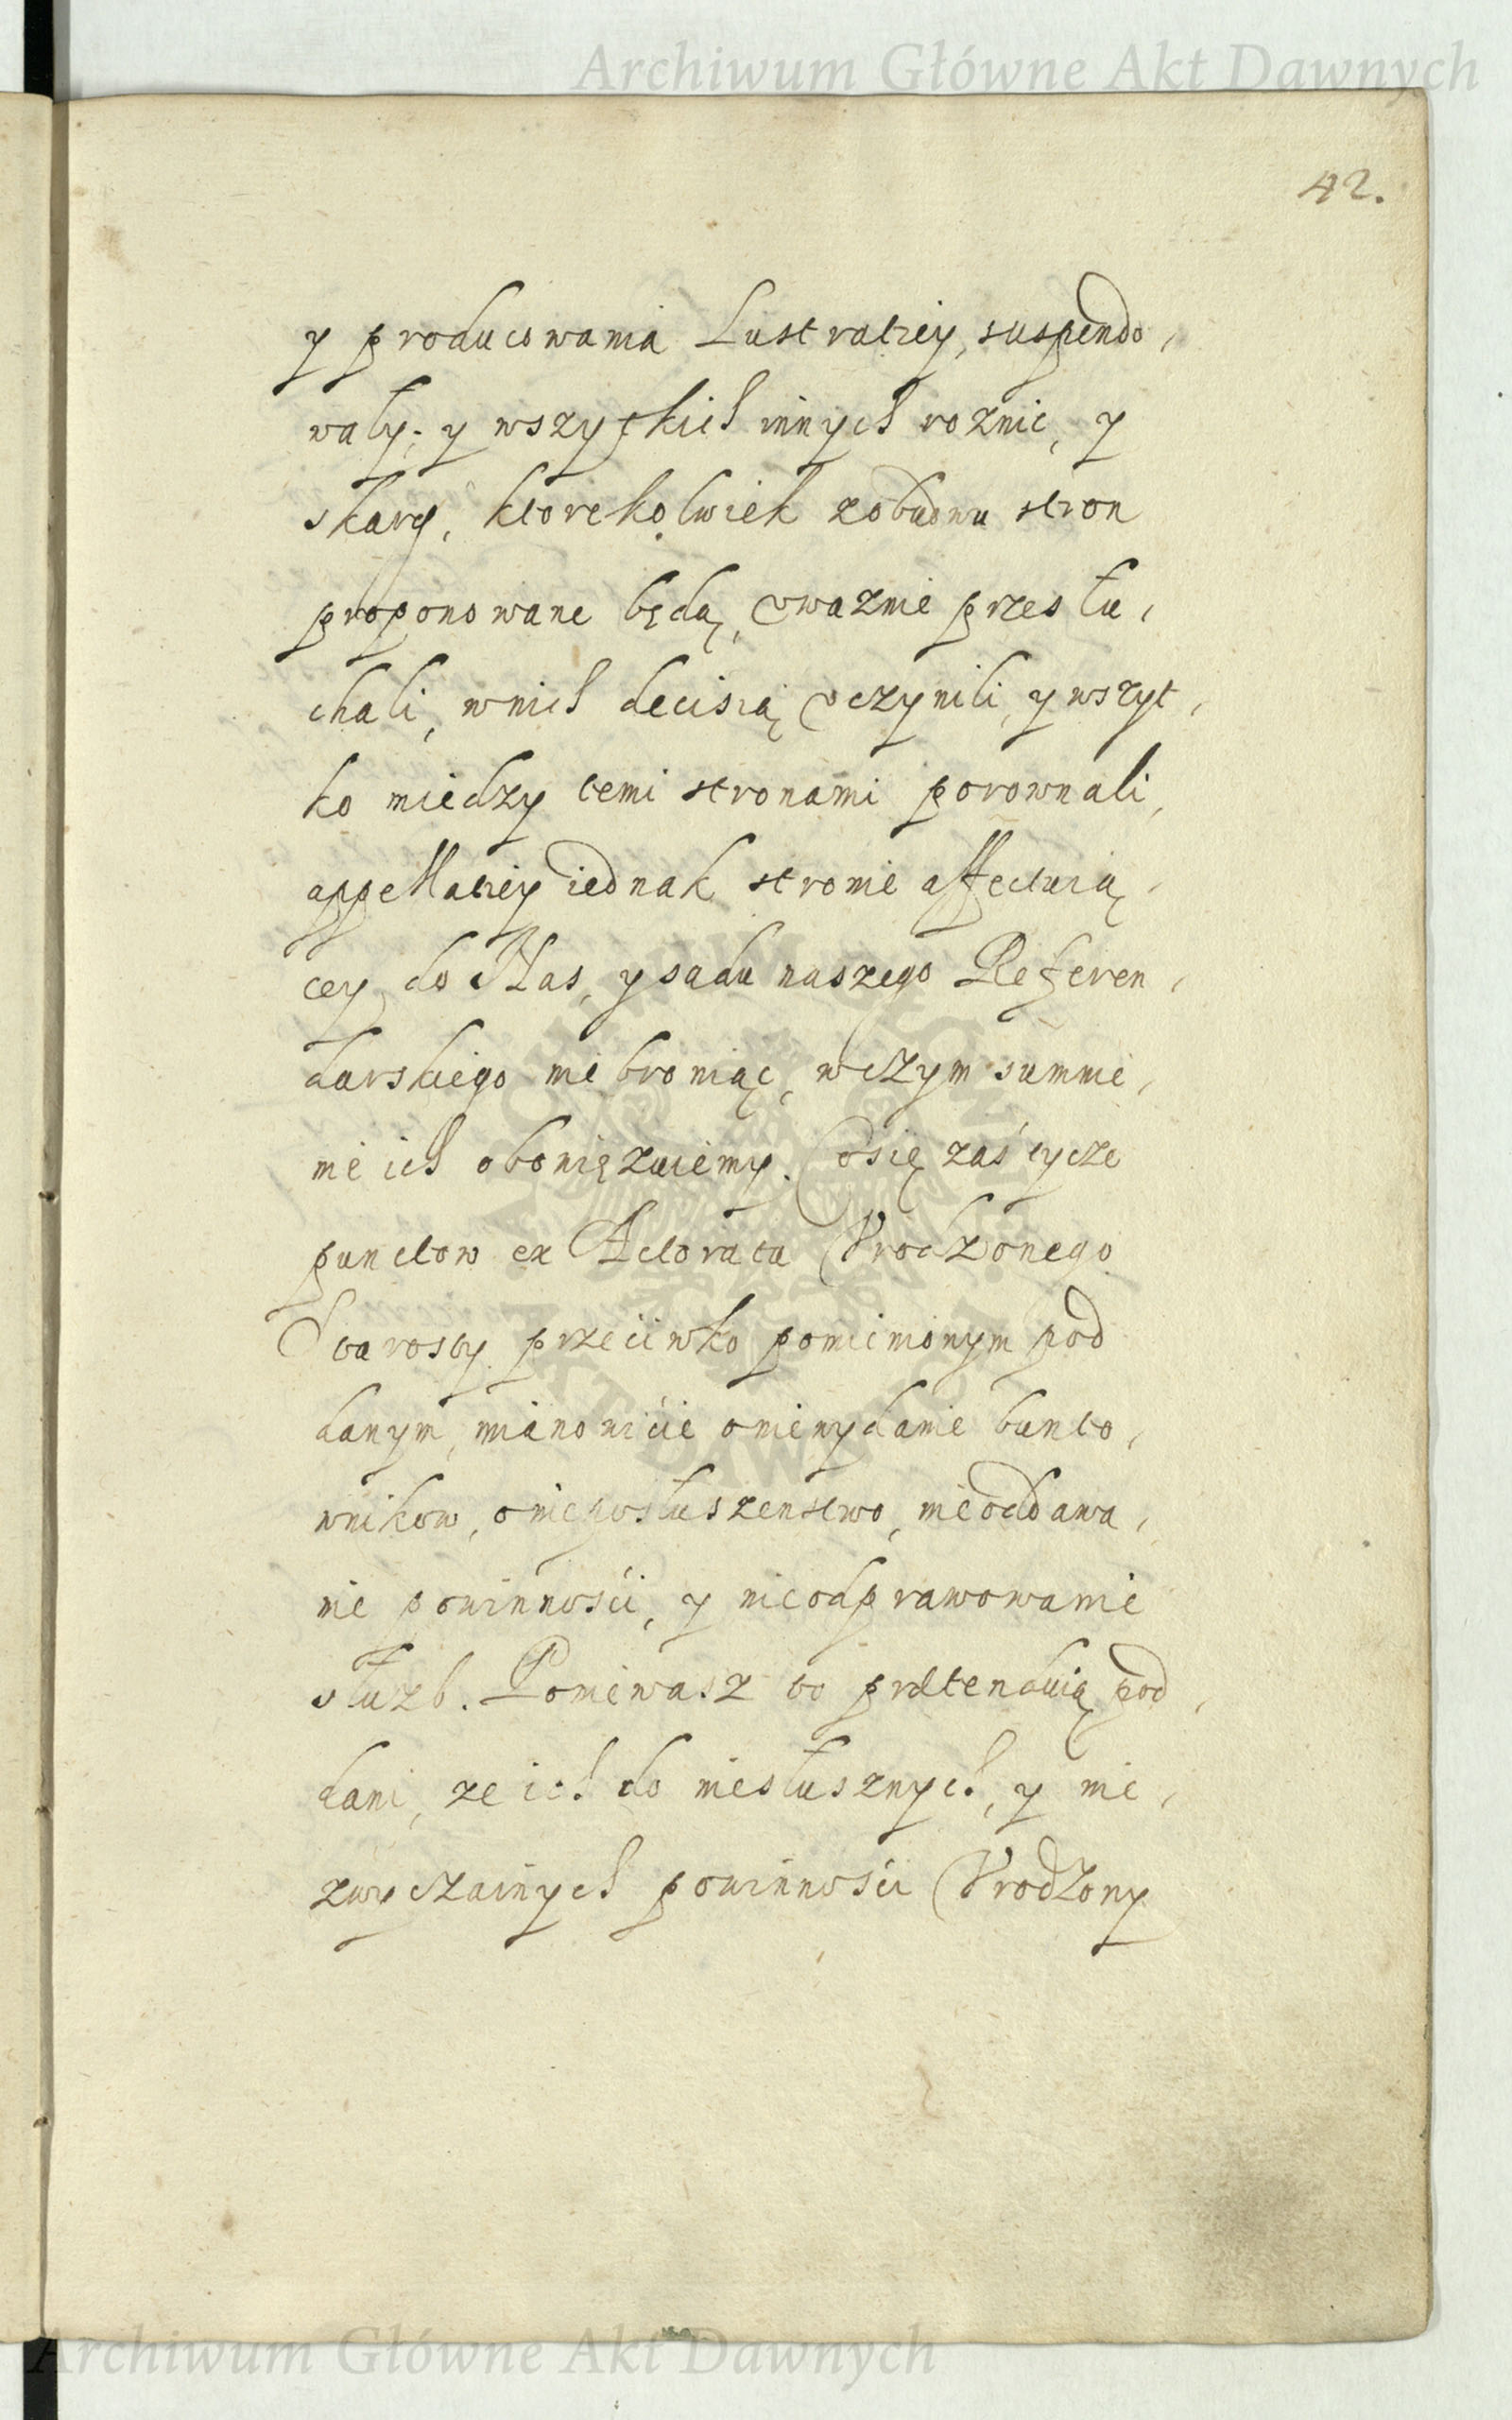 Archiwum Główne Akt Dawnych
42.
y producowania Lustratiey, suspendo,
waly; y wszystkich innych roznic, y
skarg, ktorekolwiek zobudwu stron
proponowane będą, vwaznie przesłu,
chali, wnich decisią vczynili, y wszyt,
ko miedzy temi stronami porownali,
appellatiey iednak stronie affectuią,
cey do Nas, y sadu naszego Referen,
darskiego nie broniąc, wczym summie,
nie ich obowięzuiemy. Cosię zaś tycze
punctow ex Actoratu Vrodzonego
Starosty przeciwko pomienionym pod
danym, mianowicie oniewydanie bunto,
wnikow, onieposłuszenstwo, nieoddawa,
nie powinnosci, y nieodprawowanie
słuzb. Poniewasz to prætenduią pod,
dani, ze ich do niesłusznych, y nie,
zwyczainych powinnosci Vrodzony
Archiwum Główne Akt Dawnych